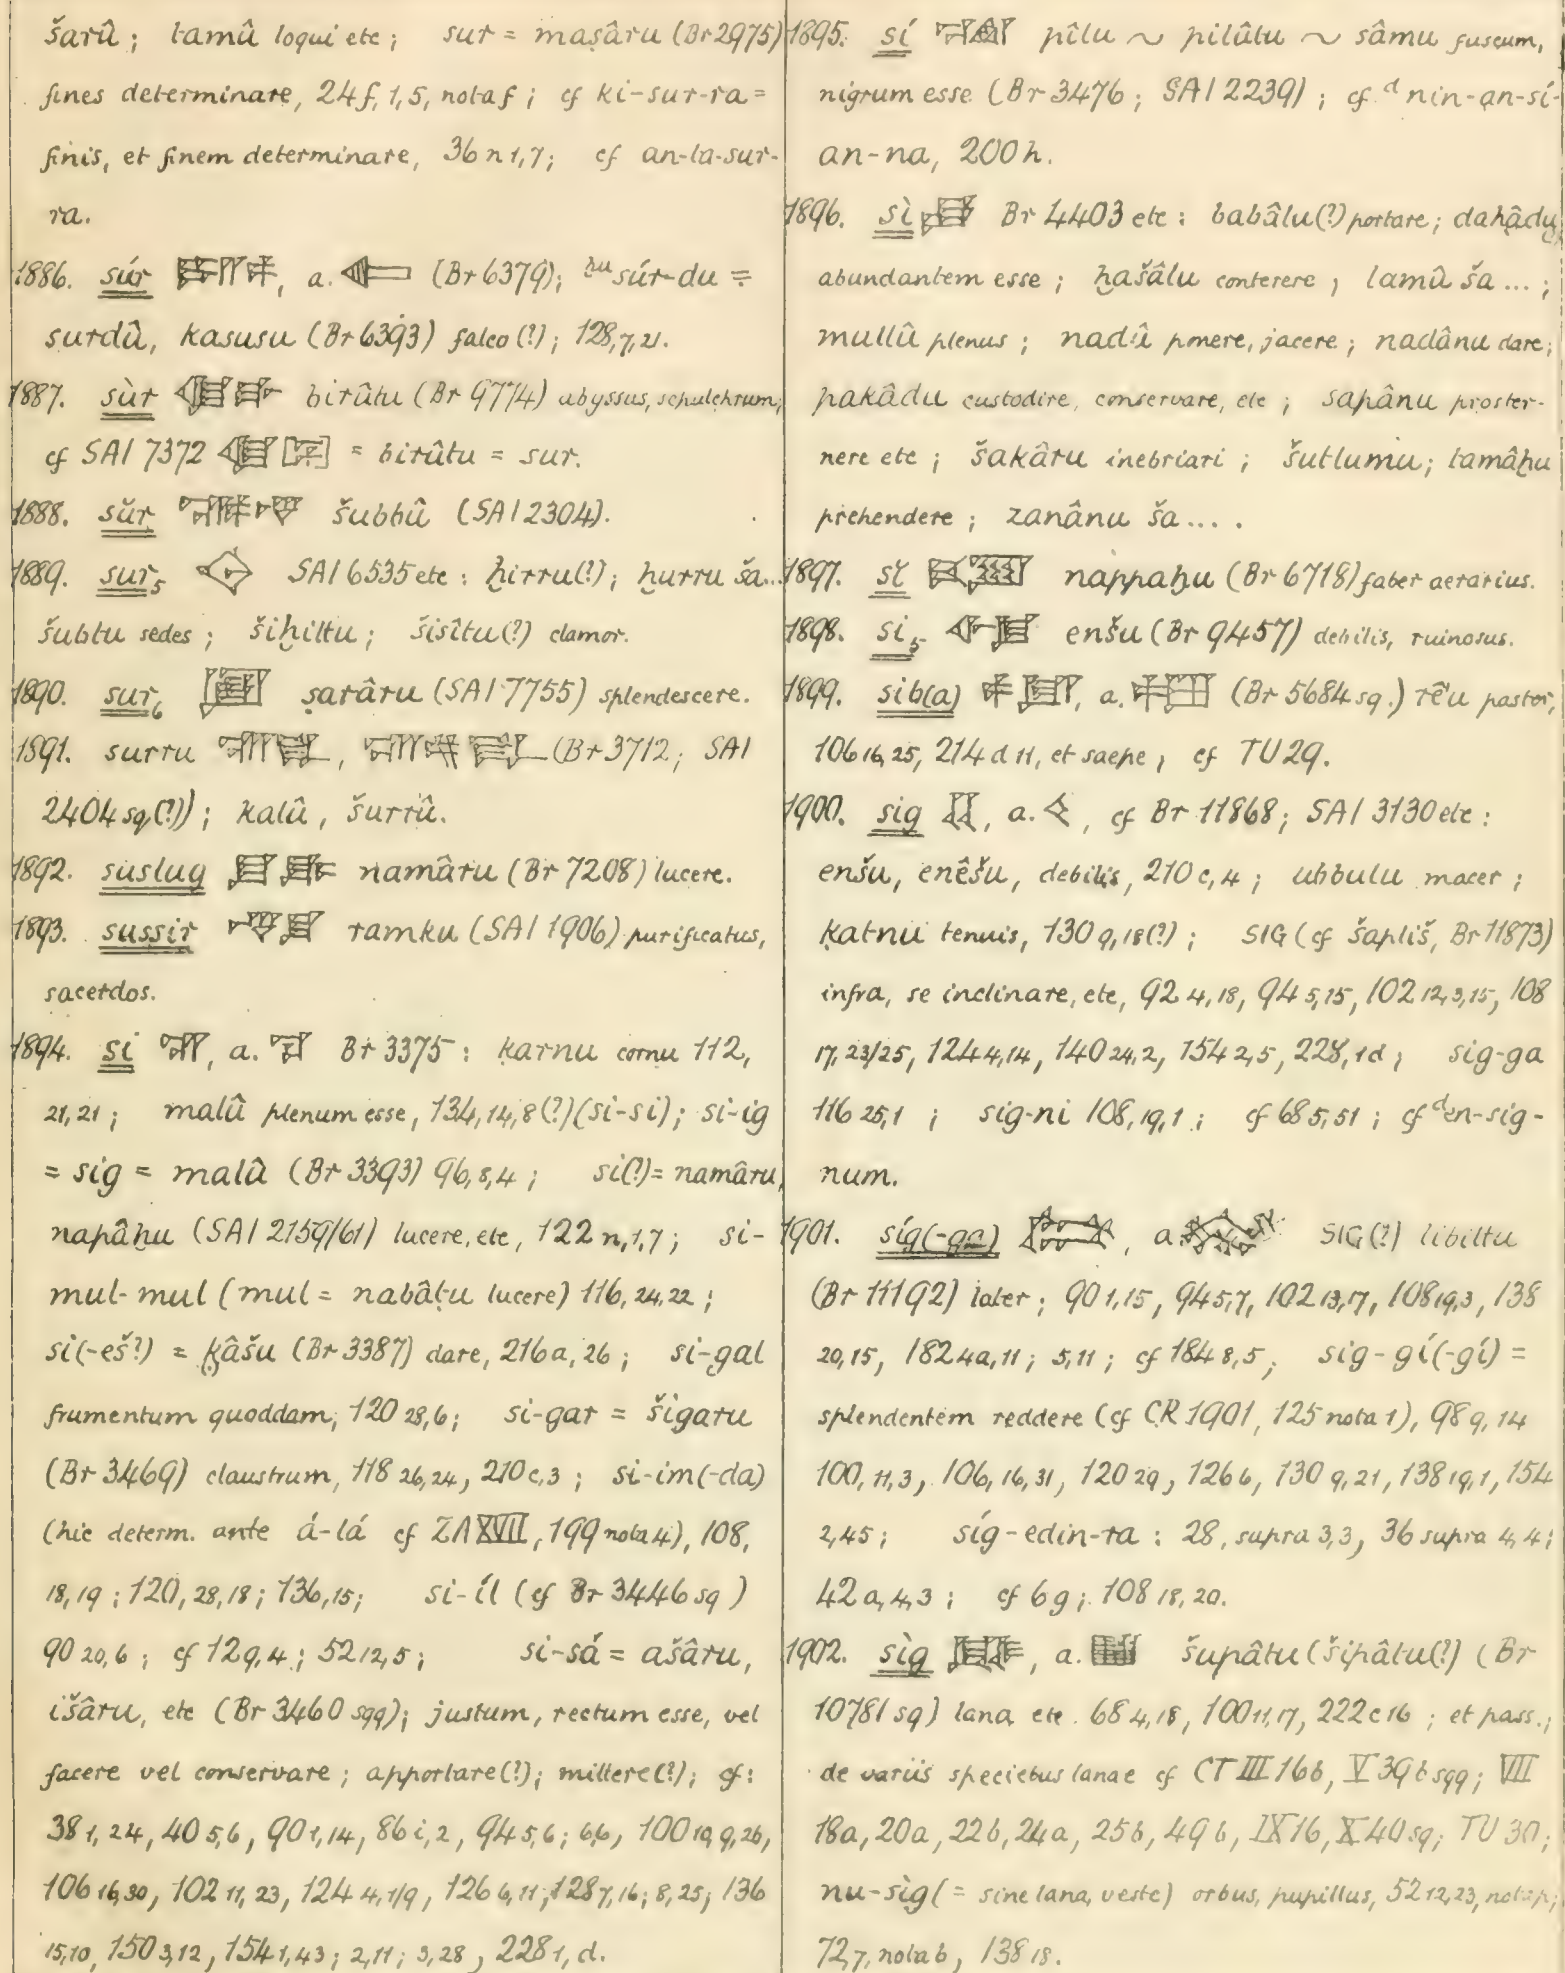 šarû; tamû loqui etc; sur = maṣâru (Br 2975)
fines determinare, 24f, 1,5, nota f; cf ki-sur-ra =
finis, et finem determinare, 36 n 1,7; cf an-ta-sur-
ra.
1886. súr, a. (Br 6379); ḫu súr-du =
surdû, kasusu (Br 6393) falco (?); 128,7,21.
1887. sùr birûtu (Br 9774) abyssus, sepulchrum;
cf SAI 7372 = birûtu = sur.
1888. sŭr šubbû (SAI 2304).
1889. sur5 SAI 6535 etc: ḫirru(?); ḫurru ša...
šubtu sedes; šiḫiltu; šisîtu(?) clamor.
1890. sur6 ṣarâru (SAI 7755) splendescere.
1891. surru , (Br 3712; SAI
2404 sq.(?)); kalû, šurrû.
1892. suslug namâru (Br 7208) lucere.
1893. sussir ramku (SAI 1906) purificatus,
sacerdos.
1894. si , a. Br 3375: karnu cornu 112,
21,21; malû plenum esse, 134,14,8(?)(si-si); si-ig
= sig = malû (Br 3393) 96,8,4; si(?)= namâru,
napâḫu (SAI 2159/61) lucere, etc, 122 n,1,7; si-
mul-mul (mul = nabâṭu lucere) 116,24,22;
si(-eš?) = ḳâšu (Br 3387) dare, 216a,26; si-gal
frumentum quoddam, 120 28,6; si-gar = šigaru
(Br 3469) claustrum, 118 26,24, 210c,3; si-im(-da)
(hic determ. ante á-lá cf ZA XVII, 199 nota 4), 108,
18,19; 120,28,18; 136,15; si-íl (cf Br 3446 sq)
90 20,6; cf 12g,4; 52 12,5; si-sá = ašâru,
išâru, etc (Br 3460 sqq); justum, rectum esse, vel
facere vel conservare; apportare(?); mittere(?); cf:
38 1,24, 40 5,6, 90 1,14, 86 i,2, 94 5,6; 6,6, 100 10,9,26,
106 16,30, 102 11,23, 124 4,1/9, 126 6,11; 128 7,16; 8,25; 136
15,10, 150 3,12, 154 1,43; 2,11; 3,28, 228 1,d.
1895. sí pîlu ~ pilûtu ~ sâmu fuscum,
nigrum esse (Br 3476; SAI 2239); cf. d nin-an-sí-
an-na, 200h.
1896. sì Br 4403 etc: babâlu(?) portare; daḫâdu
abundantem esse; ḫašâlu conterere; lamû ša...;
mullû plenus; nadû ponere, jacere; nadânu dare;
pakâdu custodire, conservare, etc; sapânu proster-
nere etc; šakâru inebriari; šutlumu; tamâḫu
prehendere; zanânu ša....
1897. sĭ nappaḫu (Br 6718) faber aerarius.
1898. si5 enšu (Br 9457) debilis, ruinosus.
1899. sib(a) , a. (Br 5684 sq.) rê'u pastor,
106 16,25, 214 d 11, et saepe; cf TU 29.
1900. sig , a. , cf Br 11868; SAI 3130 etc:
enšu, enêšu, debilis, 210c,4; ubbulu macer;
katnu tenuis, 130 9,18(?); SIG (cf šapliš, Br 11873)
infra, se inclinare, etc, 92 4,18, 94 5,15, 102 12,3,15, 108
17,23/25, 124 4,14, 140 24,2, 154 2,5, 228,1d; sig-ga
116 25,1; sig-ni 108,19,1; cf 68 5,51; cf d en-sig-
num.
1901. síg(-ga) , a. SIG(?) libittu
(Br 11192) later; 90 1,15, 94 5,7, 102 13,17, 108 19,3, 138
20,15, 182 4a,11; 5,11; cf 184 8,5; síg-gí(-gí) =
splendentem reddere (cf CR 1901, 125 nota 1), 98 9,14
100,11,3, 106,16,31, 120 29, 126 6, 130 9,21, 138 19,1, 154
2,45; síg-edin-ra: 28, supra 3,3, 36 supra 4,4;
42a,4,3; cf 6g; 108 18,20.
1902. sìg , a. šupâtu (šipâtu(?) (Br
10781 sq) lana etc. 68 4,18, 100 11,17, 222 c 16; et pass.;
de variis speciebus lanae cf CT III 16b, V 39b sqq; VII
18a, 20a, 22b, 24a, 25b, 49b, IX 16, X 40 sq; TU 30;
nu-sìg (= sine lana, veste) orbus, pupillus, 52 12,23, nota p;
72,7, nota b, 138 18.